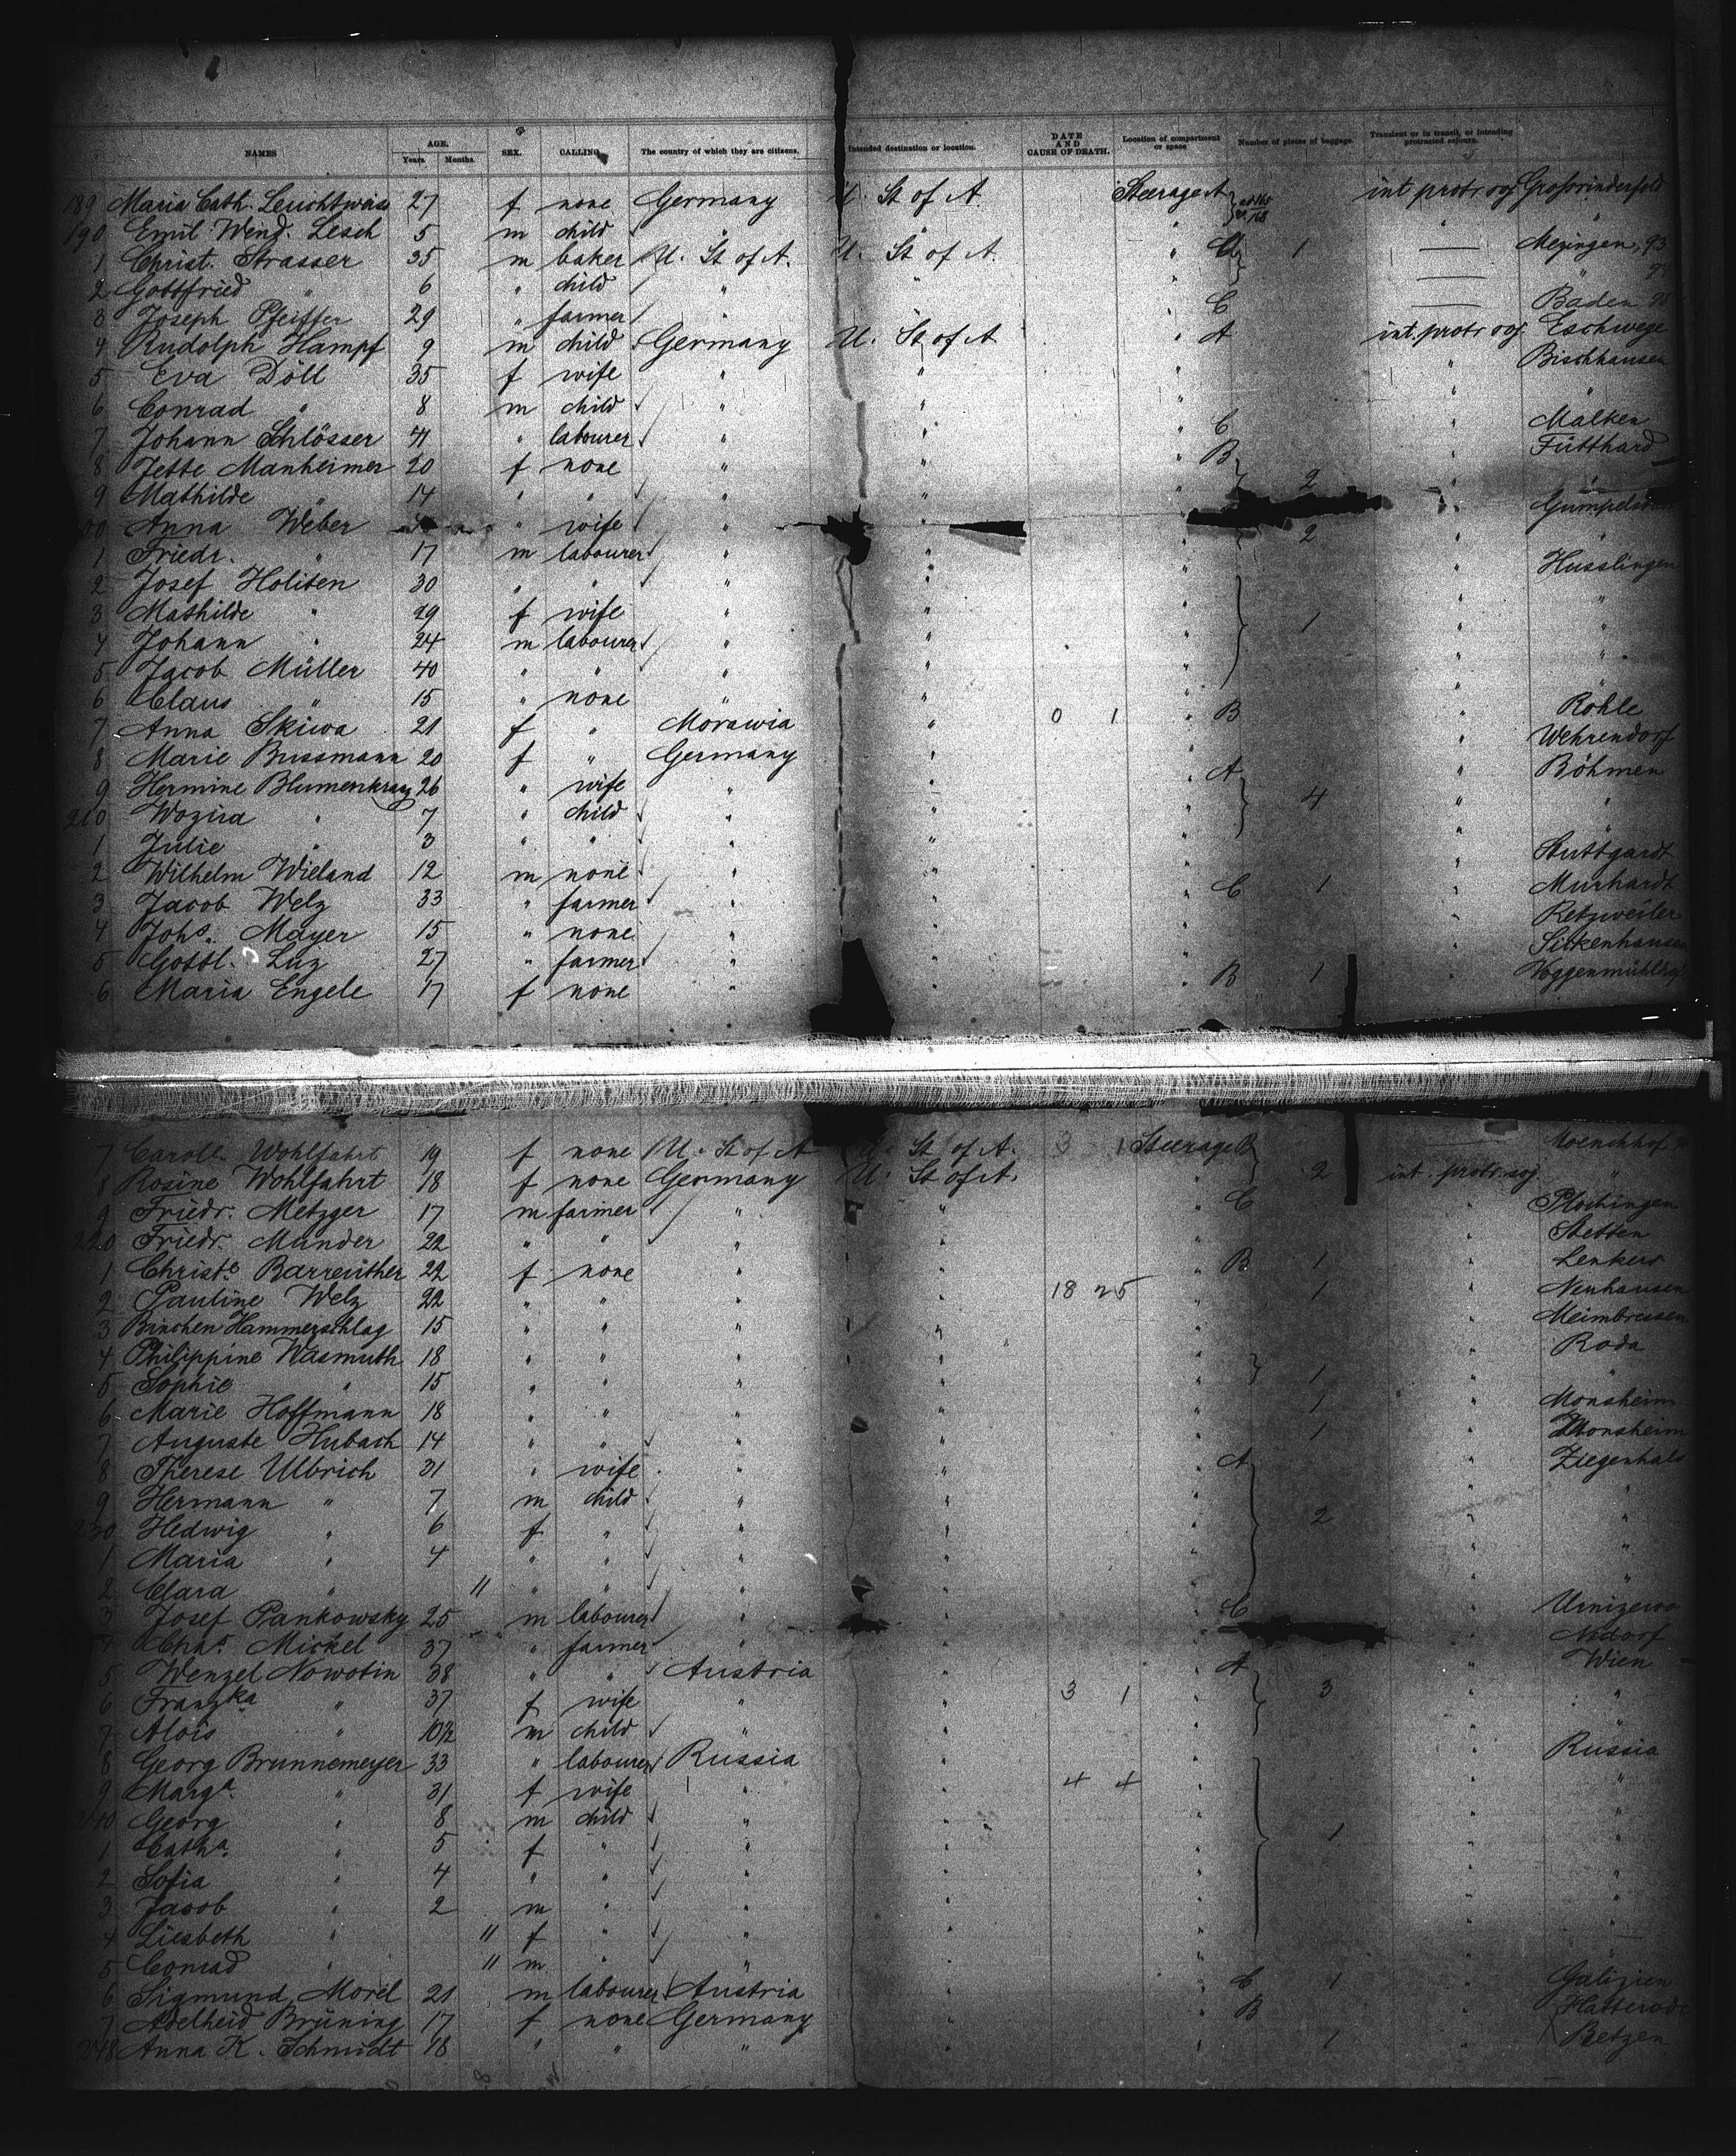 NAMES AGE. Years. Months. SEX. CALLING. The country of which they are citizens. Intended destination or location. DATE AND CAUSE OF DEATH. Location of compartment or space Number of pieces of baggage Transient or in transit, or intending protracted sojourn.
189 Maria Cath. Leuchtweis 27 f none Germany U. St of A. Steerage A int protr soj Grossrinderfeld
190 Emil Wend. Lesch 5 m child " " " "
1 Christ. Strasser 35 m baker U. St of A. U. St of A. " 1 — Mezingen, 93
2 Gottfried " 6 " child " " " — " 94
3 Joseph Pfeiffer 29 " farmer " " C — Baden 95
4 Rudolph Hampf 9 m child Germany U. St of A " A int. protr soj. Eschwege
5 Eva Döll 35 f wife " " " " Bischhausen
6 Conrad " 8 m child " " " " "
7 Johann Schlösser 41 " labourer " " " C " Malken
8 Jette Manheimer 20 f none " " " B " Fütthard
9 Mathilde " 14 " " " " " 2 "
200 Anna Weber " wife " " 2 "
1 Friedr. " 17 m labourer " " " " "
2 Josef Holiten 30 " " " " " " Husslingen
3 Mathilde " 29 f wife " " " 1 " "
4 Johann " 24 m labourer " " " " "
5 Jacob Müller 40 " " " " " " "
6 Claus " 15 " none " " " "
7 Anna Skiwa 21 f " Morawia " 0 1 " B " Rohle
8 Marie Bussmann 20 f " Germany " " " Wehrendorf
9 Hermine Blumenkranz 26 " wife " " " A 4 " Böhmen
210 Wozira " 7 " child " " " " "
1 Julie " 3 " " " " " " "
2 Wilhelm Wieland 12 m none " " " " Stuttgardt
3 Jacob Welz 33 " farmer " " " C 1 " Murhardt
4 Johs. Mayer 15 " none " " " " Retzweiler
5 Gottl. Luz 27 " farmer " " " " Sickenhausen
6 Maria Engele 17 f none " " " B 1 "
7 Wohlfahrt 19 f none U. St of A U. St of A. 3 1 Steerage B — Moenchhof
8 Rosine Wohlfahrt 18 f none Germany U. St of A. " 2 int. protr. soj "
9 Friedr. Metzger 17 m farmer " " " C " Plochingen
220 Friedr. Munder 22 " " " " " " Stetten
1 Christe. Barreuther 22 f none " " " B 1 " Lenkers
2 Pauline Welz 22 " " " " 18 25 " 1 " Neuhausen
3 Binchen Hammerschlag 15 " " " " " " Meimbressen
4 Philippine Wasmuth 18 " " " " " " Roda
5 Sophie " 15 " " " " " 1 " "
6 Marie Hoffmann 18 " " " " " 1 " Monsheim
7 Auguste Hubach 14 " " " " " 1 " Monsheim
8 Therese Ulbrich 31 " wife " " " A " Ziegenhals
9 Hermann " 7 m child " " " " "
230 Hedwig " 6 f " " " " 2 " "
1 Maria " 4 " " " " " " "
2 Clara " 11 " " " " " " "
3 Josef Pankowsky 25 m labourer " " " C "
4 Chas. Mickel 37 " farmer " " " "
5 Wenzel Nowotin 38 " " Austria " " A " Wien
6 Franzka " 37 f wife " " 3 1 " 3 " "
7 Alois " 10½ m child " " " " "
8 Georg Brunnemeyer 33 " labourer Russia " " " Russia
9 Marga. " 31 f wife " " 4 4 " " "
240 Georg " 8 m child " " " " "
1 Catha. " 5 f " " " " 1 " "
2 Sofia " 4 " " " " " " "
3 Jacob " 2 m " " " " " "
4 Liesbeth " 11 f " " " " " "
5 Conrad " 11 m " " " " " "
6 Sigmund Morel 21 m labourer Austria " " C 1 " Galizien
7 Adelheid Brüning 17 f none Germany " " B " Hatterode
248 Anna K. Schmidt 18 " " " " " 1 " Betzen